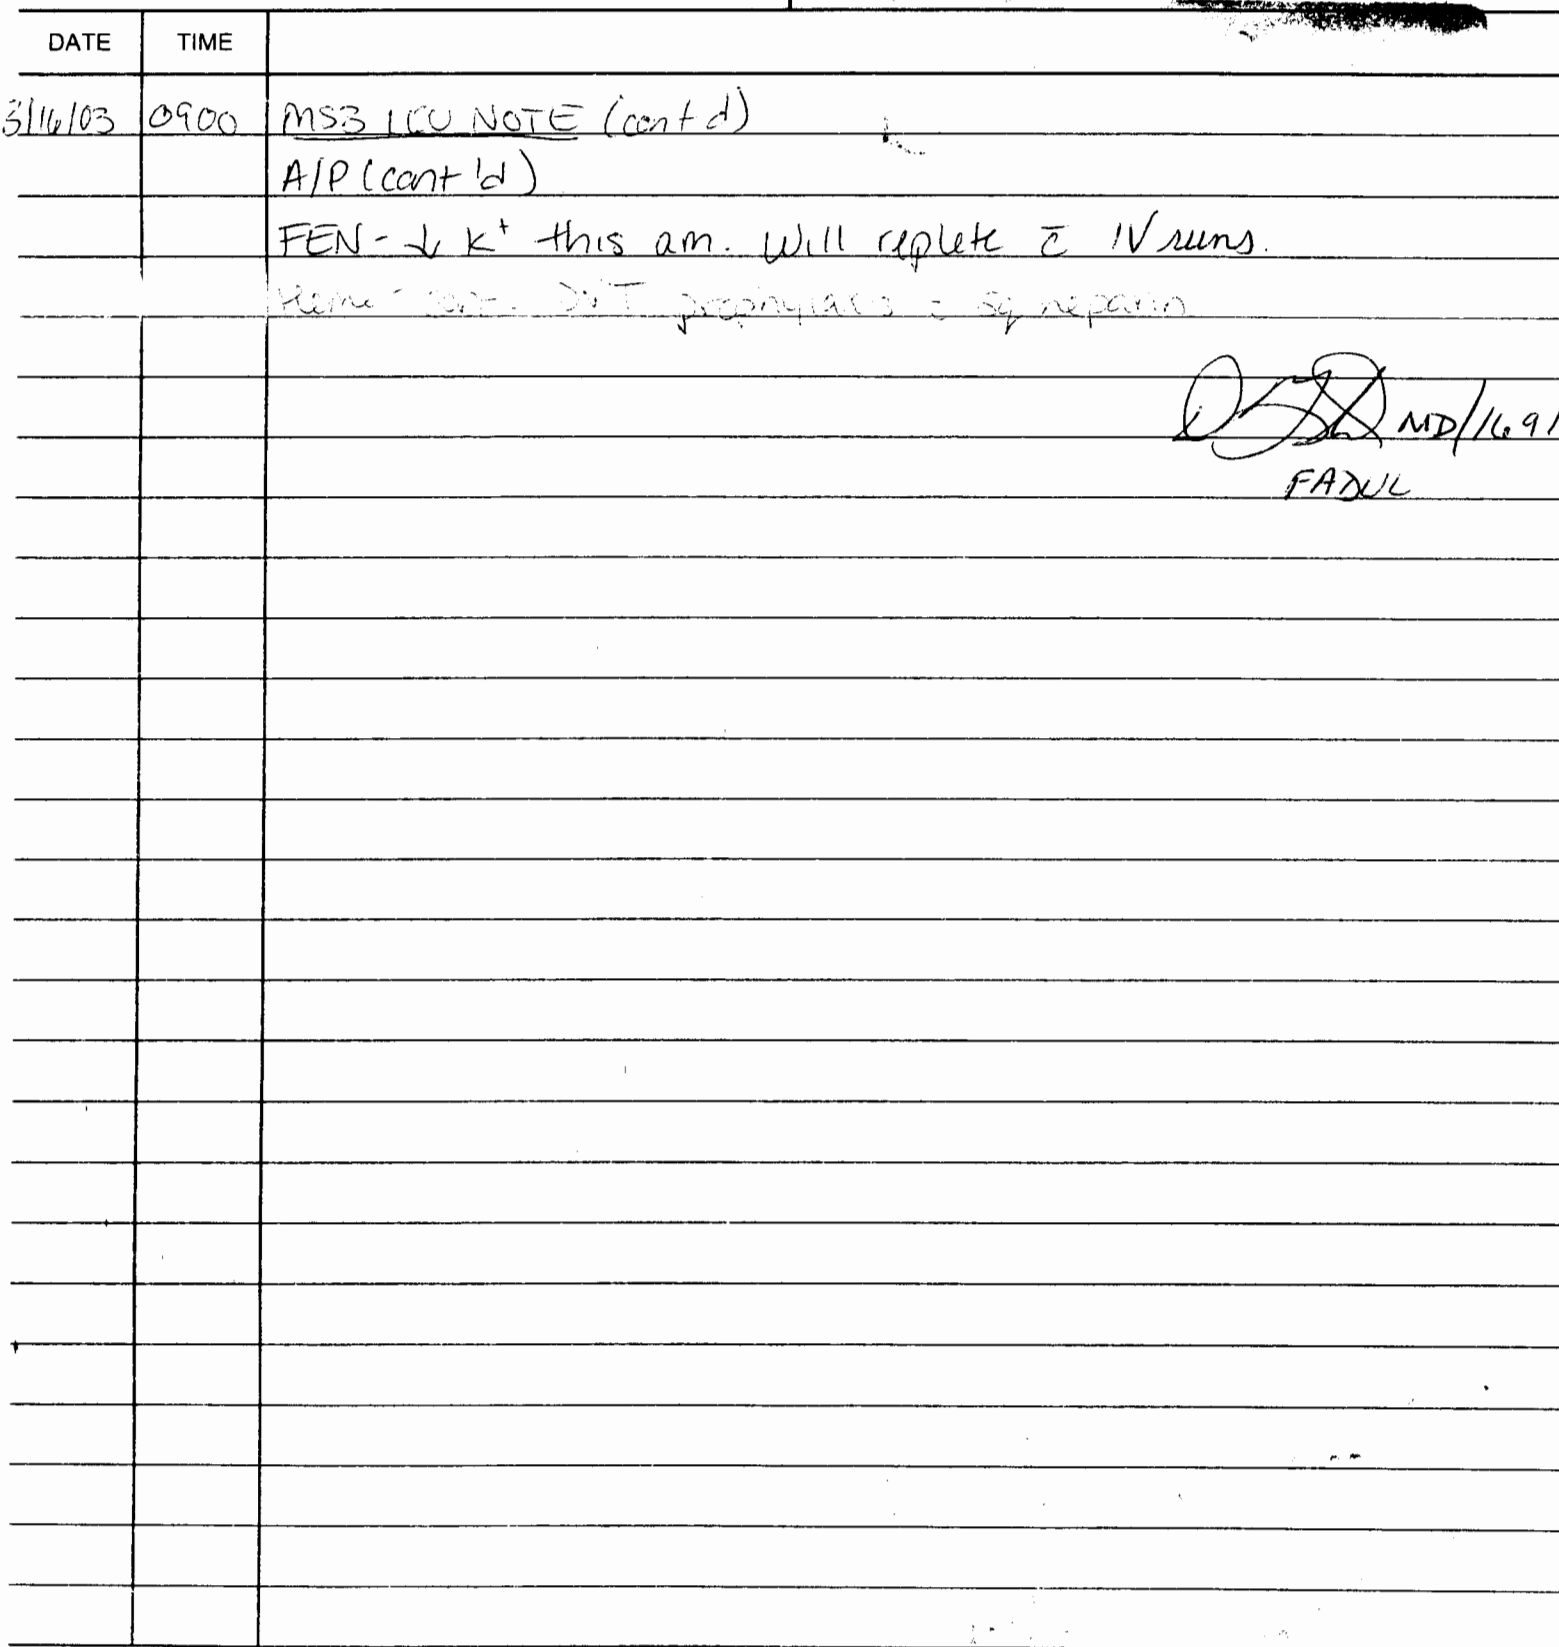 DATE TIME
3/16/03 0900 MS3 ICU NOTE (cont d)
A/P (cont'd)
FEN - ↓ K+ this am. Will replete c̄ IV runs.
Heme - cont. DVT prophylaxis c̄ sq heparin
MD/1691
FADUL